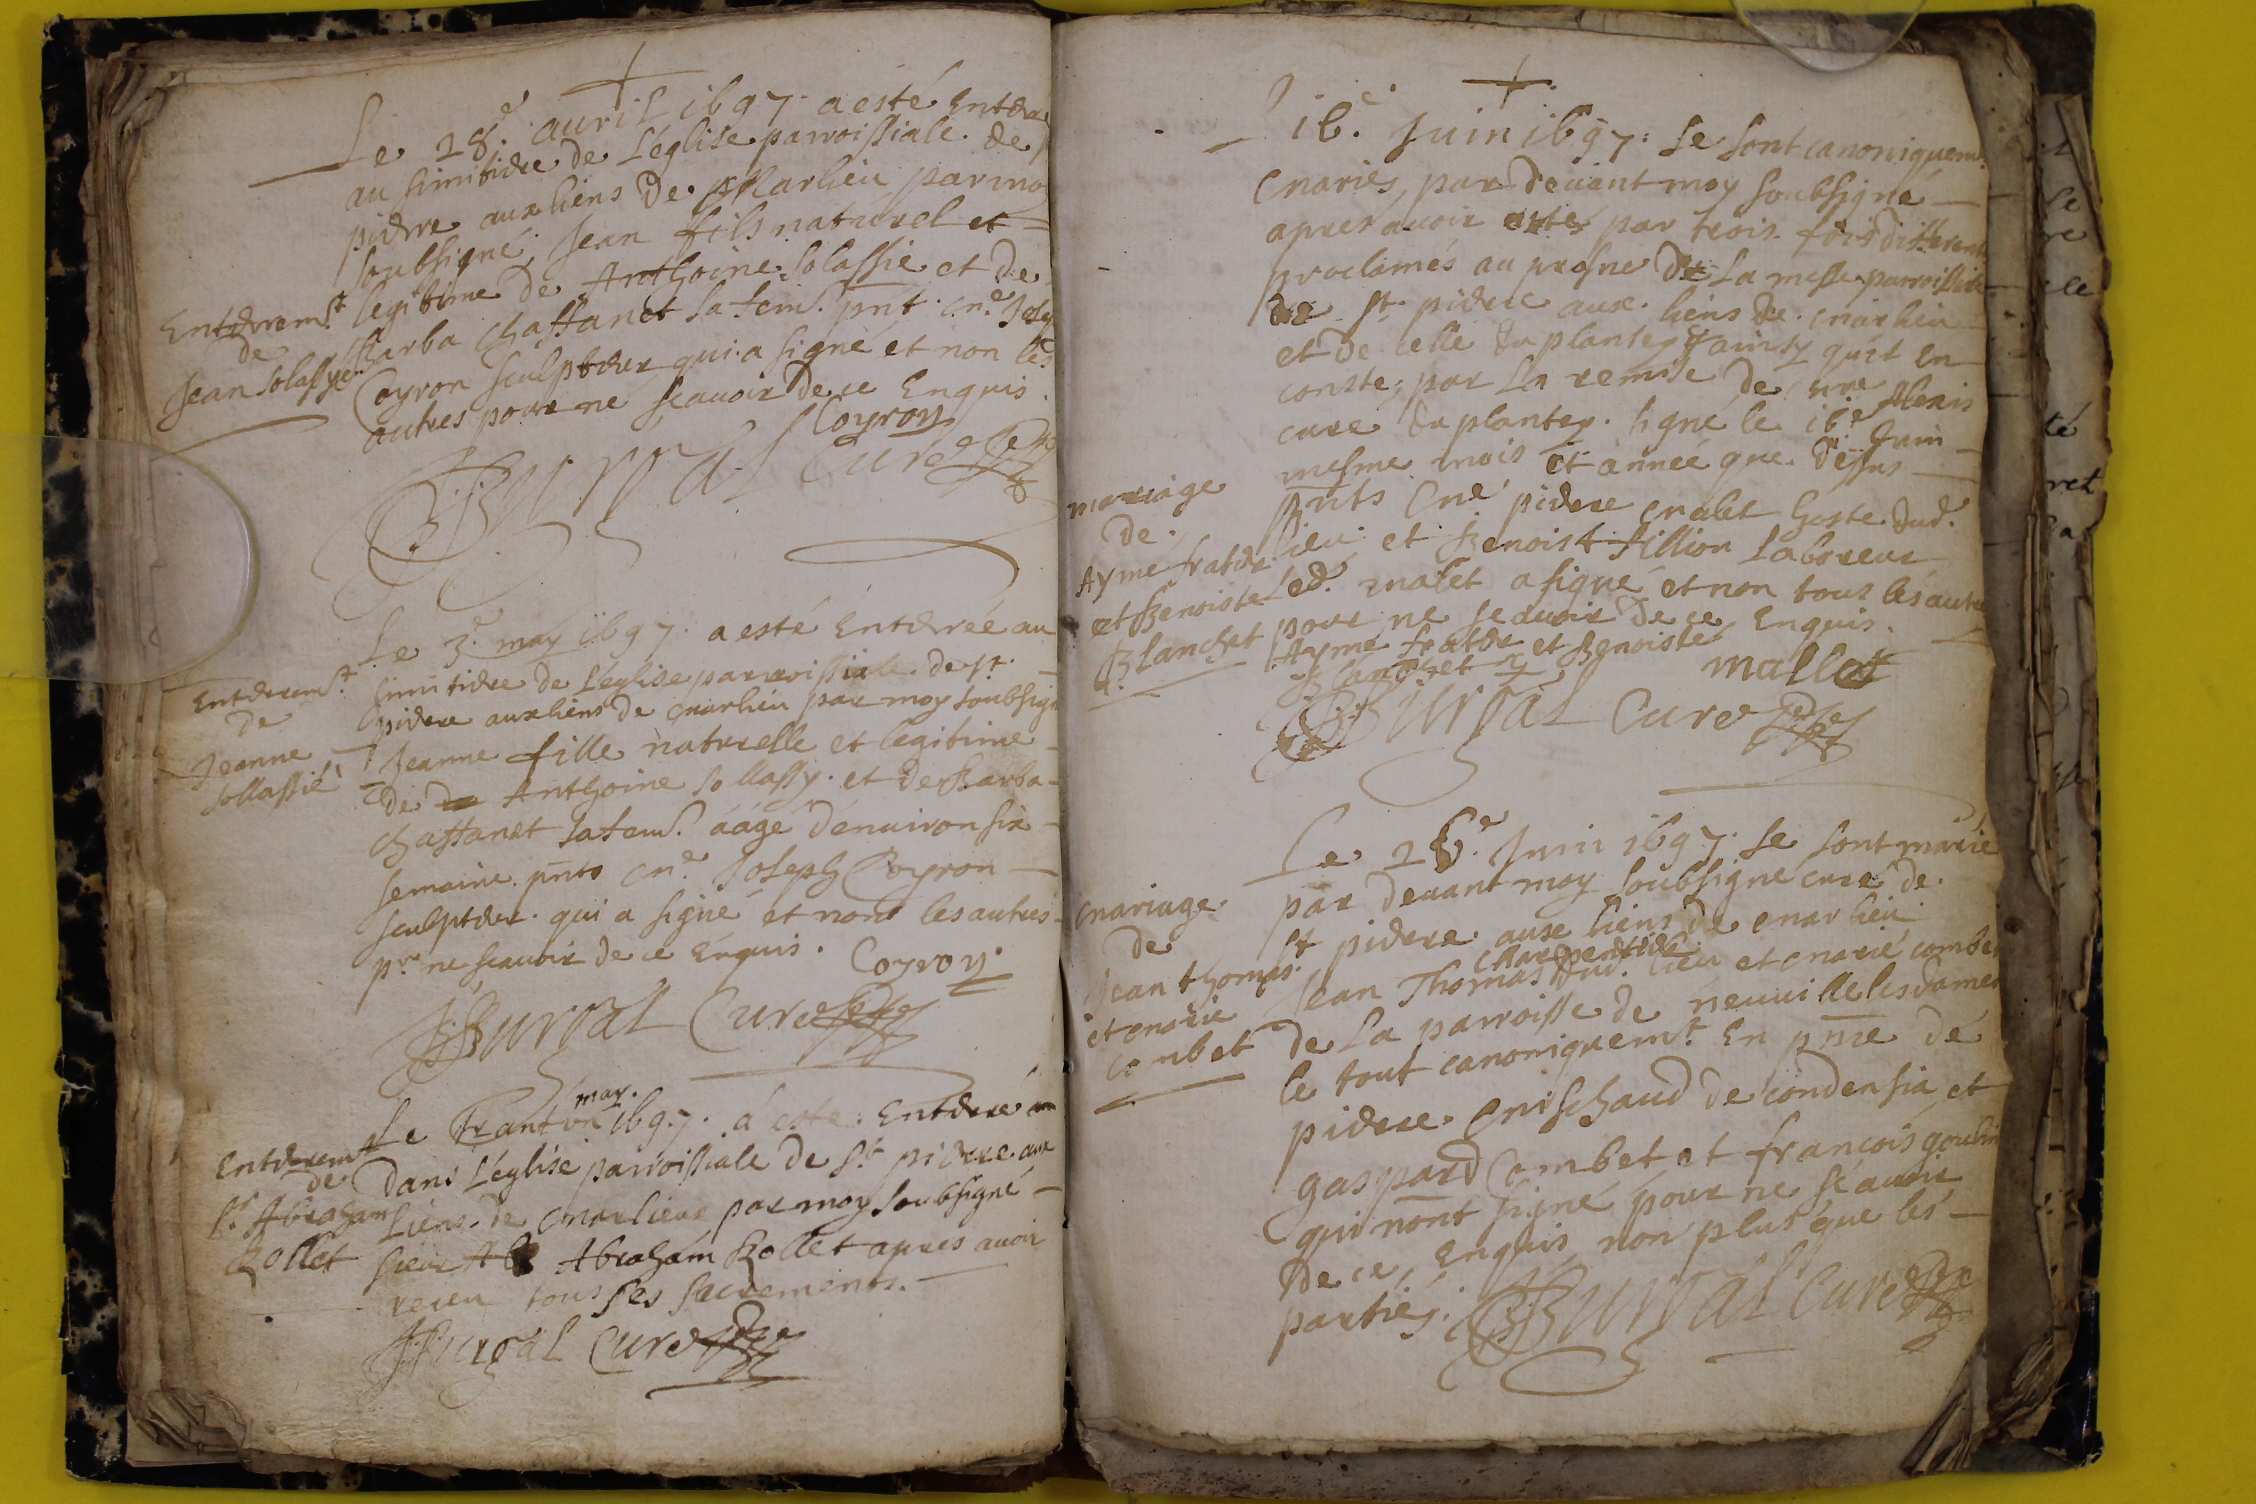 Le 28e. auril 1697. a esté Enterré
au simitiere de L'église parroissiale. de
pierre aux liens de Marlieu par moy
soubsigné, Jean fils naturel et
legitime de Anthoine Solassie et de
Barba Chassanet sa fem. pnt. me. Joseph
Coyron sculpteur qui a signé et non les
autres pour ne scauoir de ce Enquis.
Coyron
Burtal Curé
Enterremt.
de
Jean Solassye
Le 3e. may 1697. a esté Enterrée au
simitiere de L'eglise parroissiale. de st.
pierre aux liens de marlieu par moy soubsigné
Jeanne fille naturelle et legitime
de Anthoine Sollassy. et de Barba
chassanet sa fem. aagé d'enuiron six
semaine. pnts me. Joseph Coyron
sculpteur. qui a signé et non les autres
pr. ne scauoir de ce Enquis. Coyron.
Burtal Curé
Enterremt.
de
Jeanne
Sollassié
may.
Le 1697. a esté. Enterré
Dans L'église parroissiale de St. pierre aux
Liens de marlieux par moy soubsigné
sieur Abraham Rollet apres auoir
receu tous ses sacrements.
Burtal Curé
Enterremt.
de
sr. Abraham
Rollet
16e. Juin 1697: se sont canoniquemt.
mariés, par deuant moy soubsigné
apres auoir esté par trois. fois differentes
proclamés au prosne de La messe parroissiale
de st. pierre aux. liens de. marlieu
et de celle du plantey ainsy qu'il en
conste, par La remise de mre Alexis
curé du plantey. signé le 16e Juin
mesme mois et année que. dessus
pnts me. pierre malet hoste dud.
lieu et Benoist fillion Laboreur
Led. malet a signé et non tous les autres
pour ne scauoir de ce Enquis.
Aymé frater et Benoiste
Blanchet
mallet
Burtal Curé
mariage
de.
Aymé frater
et Benoiste
Blanchet
Le 28e. Juin 1697. se sont marié
par deuant moy soubsigné curé de.
st pierre aux liens de marlieu
charpentier
Jean Thomas dud. lieu et marie combet
de La parroisse de neuuille les dames
le tout canoniquemt. En pnce de
pierre. michaud de condensia et
gaspard Combet et francois
qui n'ont signé pour ne scauoir
de ce, Enquis non plus que les
parties. Burtal Curé
mariage.
de
Jean thomas.
et marie
combet